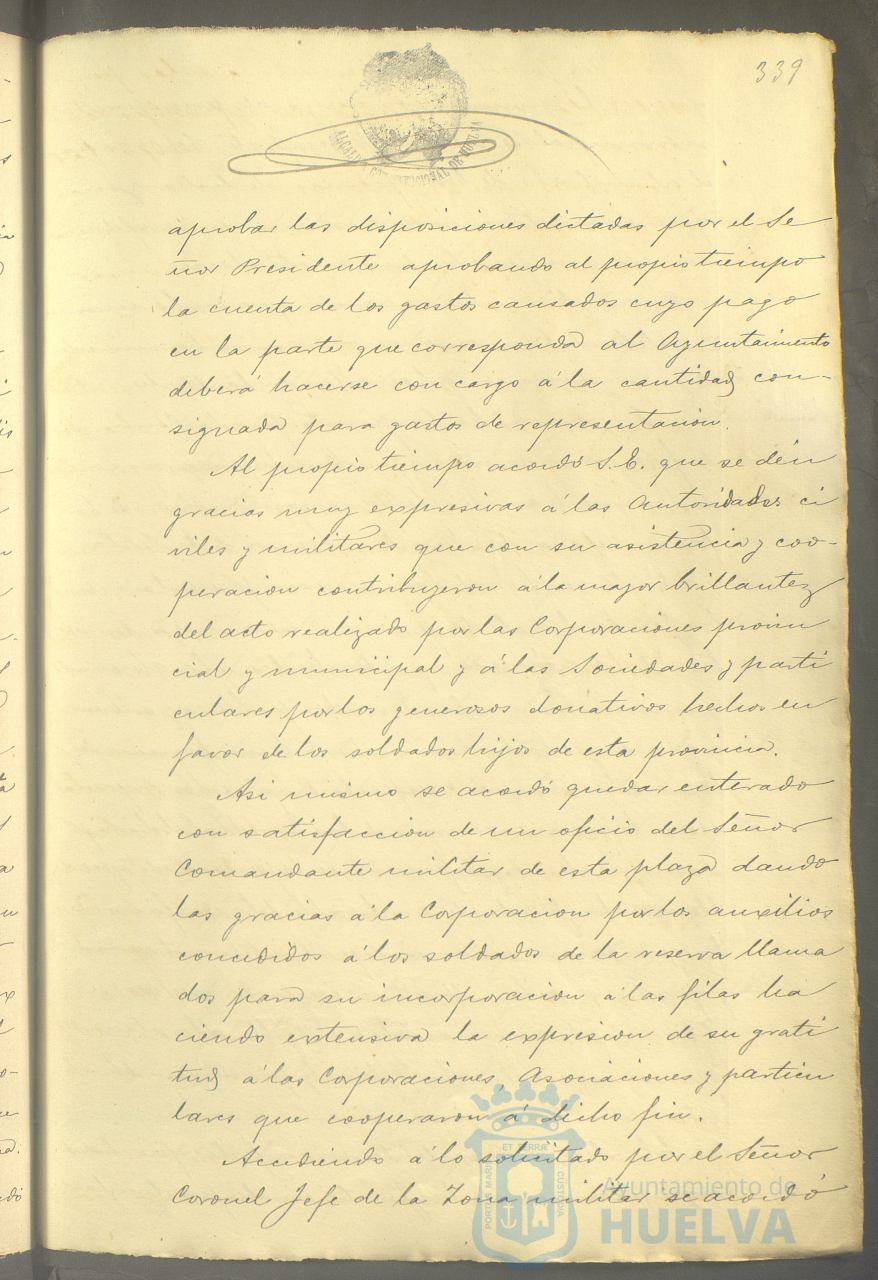 339
ALCALDIA CONSTITUCIONAL DE HUELVA
aprobar las disposiciones dictadas por el Se
ñor Presidente aprobando al propio tiempo
la cuenta de los gastos causados cuyo pago
en la parte que corresponda al Ayuntamiento
deberá hacerse con cargo á la cantidad con-
signada para gastos de representación.
Al propio tiempo acordó S.E. que se dén
gracias muy expresivas á las Autoridades ci
viles y militares que con su asistencia y coo-
peracion contribuyeron á la mayor brillantez
del acto realizado por las Corporaciones provin
cial y municipal y á las Sociedades y parti
culares por los generosos donativos hechos en
favor de los soldados hijos de esta provincia.
Asi mismo se acordó quedar enterado
con satisfaccion de un oficio del Señor
Comandante militar de esta plaza dando
las gracias á la Corporacion por los auxilios
concedidos á los soldados de la reserva llama
dos para su incorporacion á las filas ha
ciendo extensiva la expresion de su grati
tud á las Corporaciones, Asociaciones y particu
lares que cooperaron á dicho fin.
Accediendo á lo solicitado por el Señor
Coronel Jefe de la Zona militar se acordó
PORTUS MARIS ET TERRAE CUSTODIA
Ayuntamiento de
HUELVA